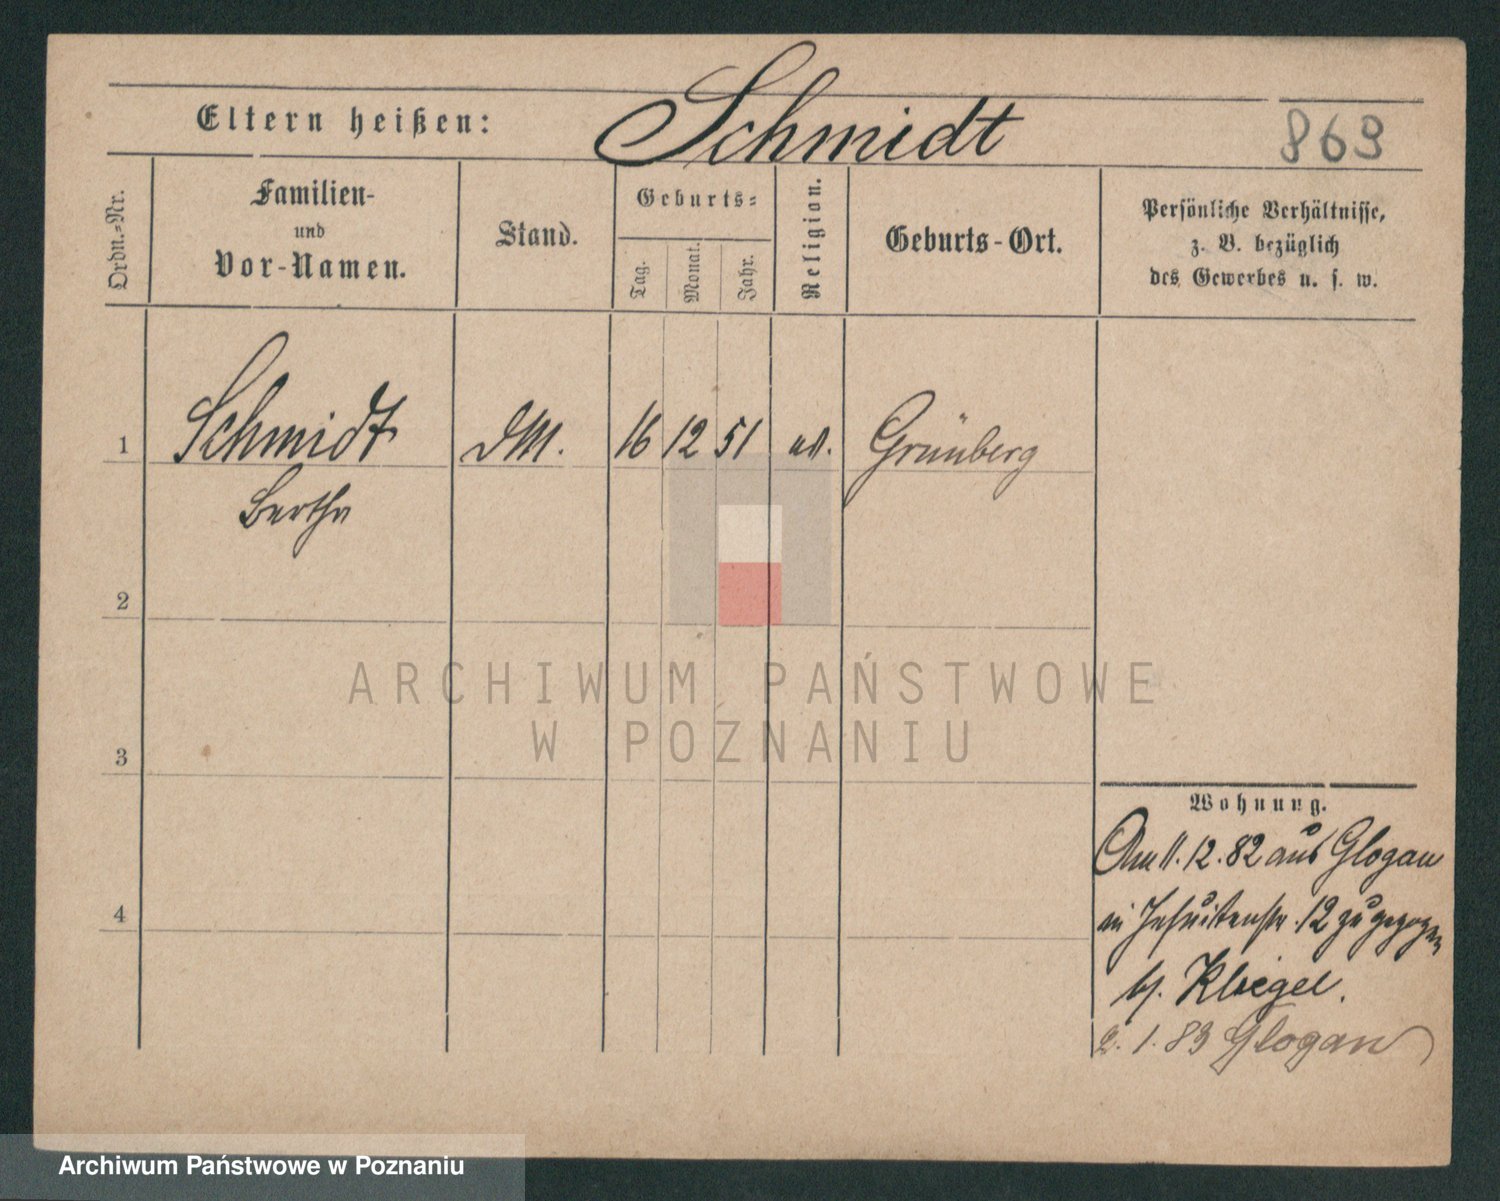 Eltern heißen: Schmidt 869
Ordn.-Nr. Familien- und Vor-Namen. Stand. Geburts- Tag. Monat. Jahr. Religion. Geburts-Ort. Persönliche Verhältnisse, z. B. bezüglich des Gewerbes u. s. w.
1 Schmidt DM. 16 12 51 ev. Grünberg
Bertha
2
3
4
Wohnung.
Am 11.12.82 aus Glogau
in Jesuitenstr. 12 zugezogen
b/. Kliegel.
2. 1. 83 Glogau
ARCHIWUM PAŃSTWOWE
W POZNANIU
Archiwum Państwowe w Poznaniu